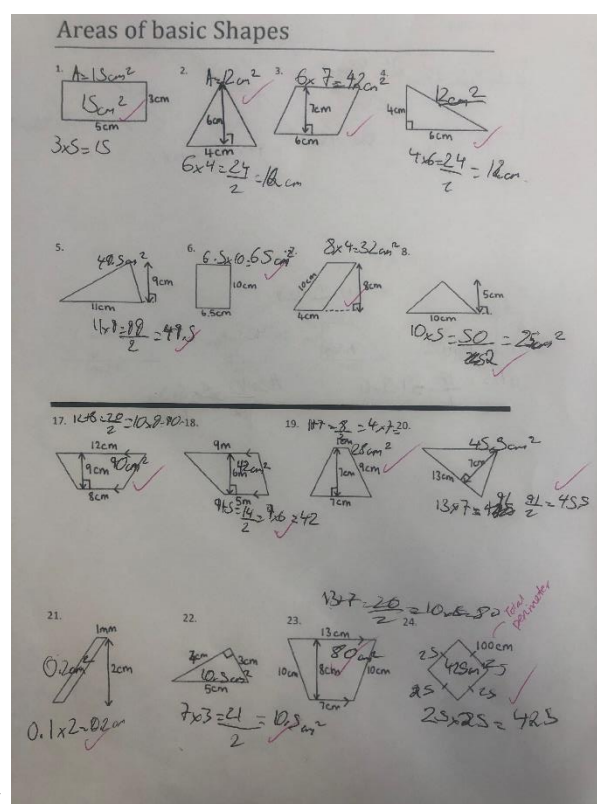 Areas of basic Shapes
1. A=15cm²
15cm²
3cm
5cm
3x5=15
2. A=12cm²
6cm
4cm
6x4=24
2
3. 6x7=42cm²
7cm
6cm
4.
12cm²
4cm
6cm
4x6=24
2
5.
48.5cm²
9cm
11cm
2
6. 6.5x10=65cm²
10cm
6.5cm
8x4=32cm²
10cm
8cm
4cm
8.
5cm
10cm
10x5=50
=25cm²
17.
=10x9=90
12cm
9cm
90cm²
8cm
18.
9m
6m
42cm²
5m
9+5=14
2
=42
19. 1+7=8
2
=4x7=
28cm²
7cm
9cm
7cm
20.
45.5cm²
7cm
13cm
13x7=
91
2
=455
21.
1mm
0.2cm²
2cm
0.1x2=0.2cm
22.
7cm
3cm
10.5cm²
5cm
7x3=21
2
=10.5cm²
13+7=20
2
23.
13cm
80cm²
10cm
8cm
10cm
7cm
24.
Total perimeter
100cm
25
25
25
25x25=425